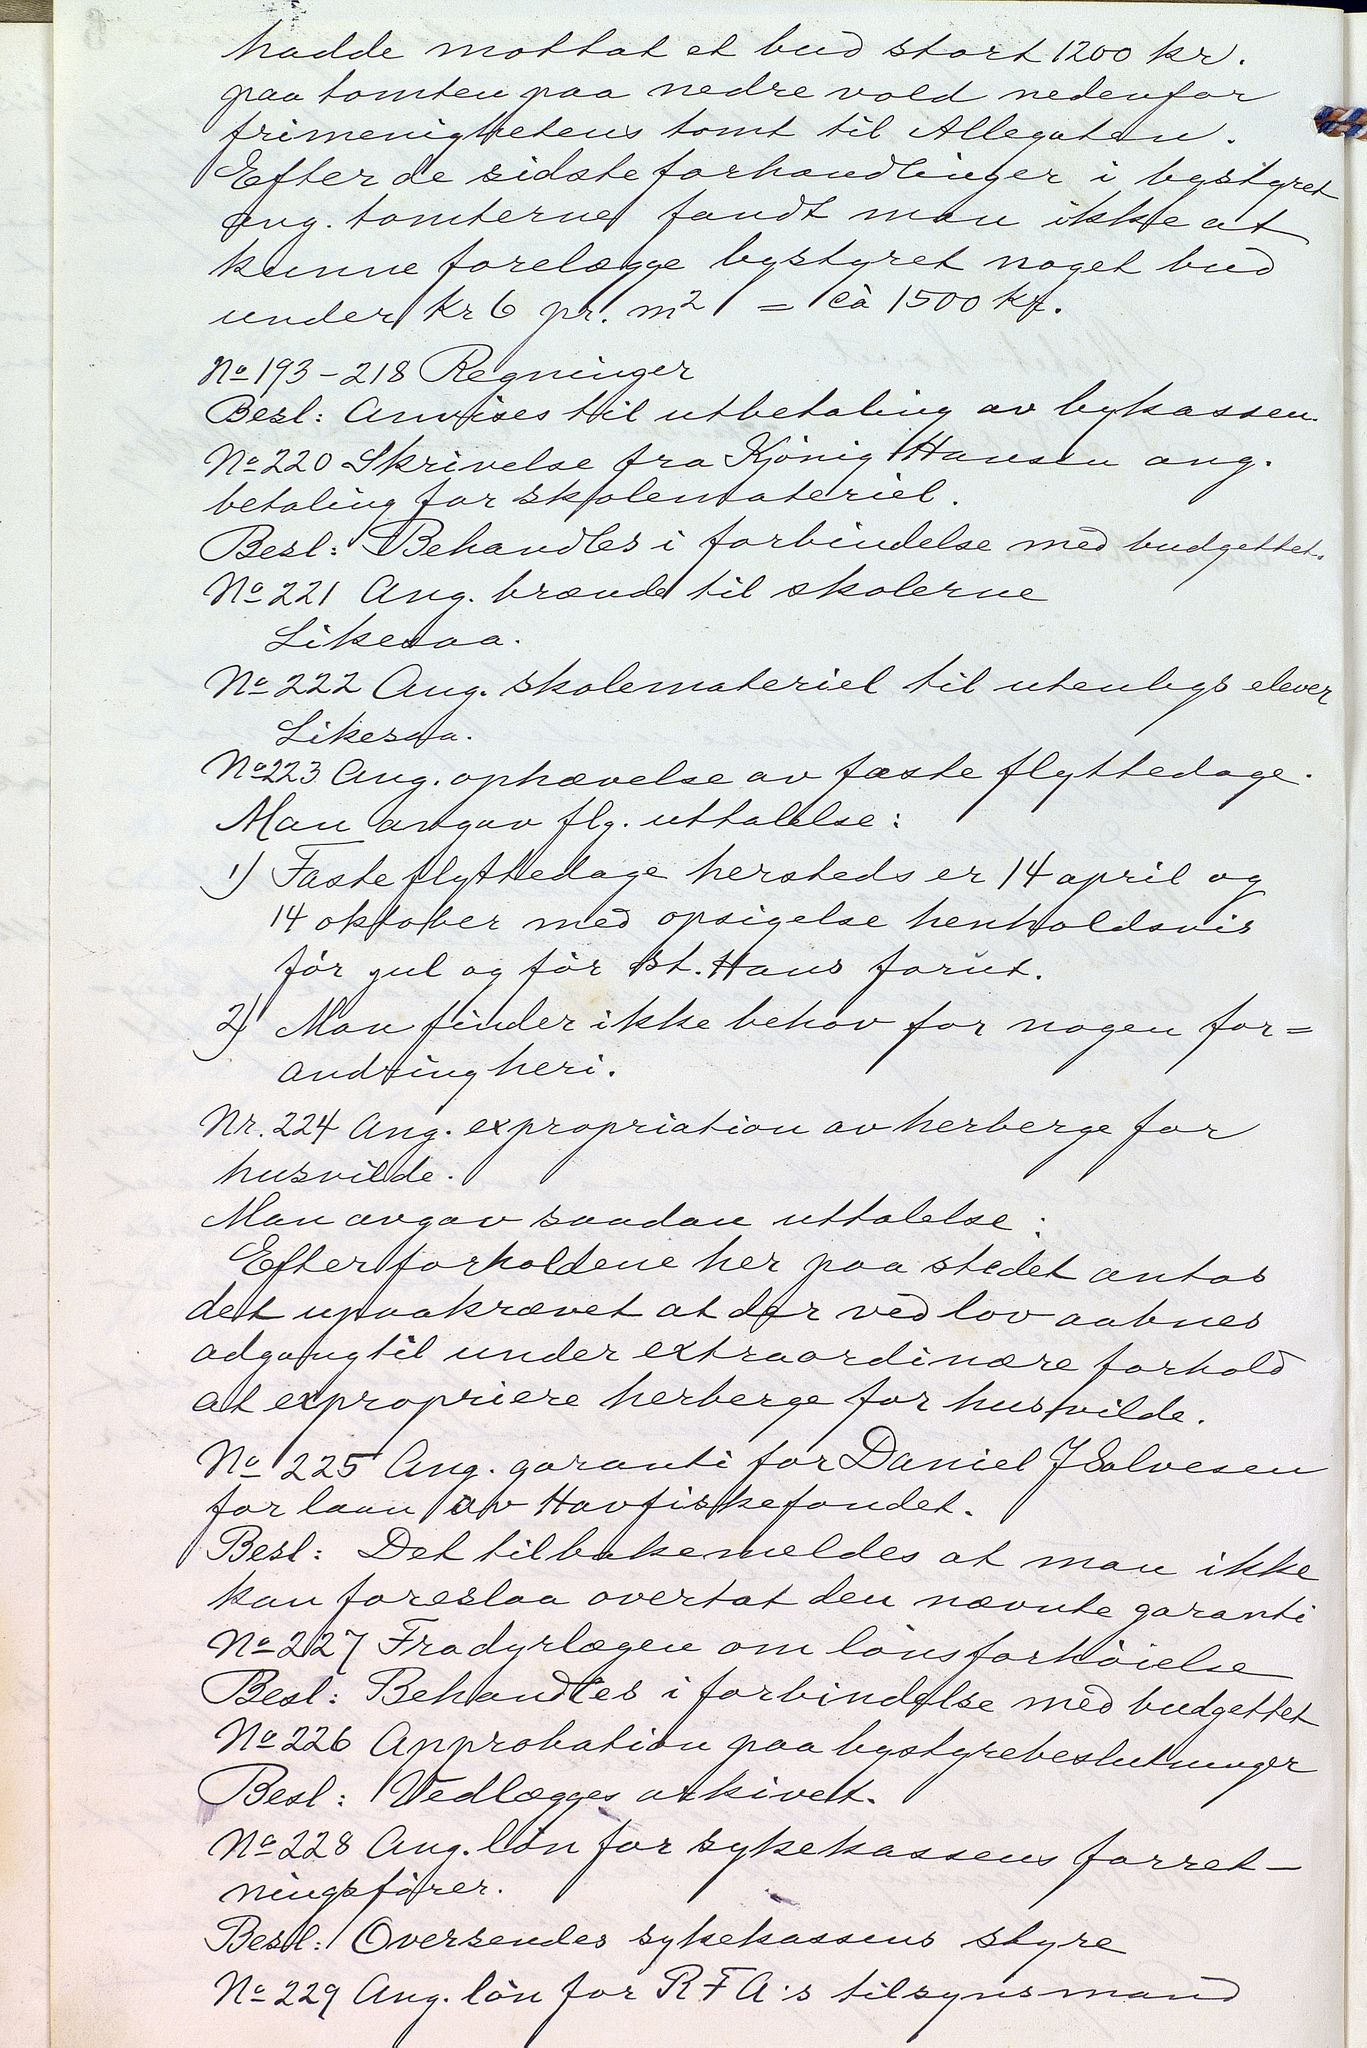 hadde mottat et bud stort 1200 kr.
paa tomten paa nedre vold nedenfor
frimenighetens tomt til Allegaten.
Efter de sidste forhandlinger i bystyret
ang. tomterne fandt man ikke at
kunne forelægge bystyret noget bud
under kr 6 pr. m² = cà 1500 kr.
No 193-218 Regninger
Besl: Anvises til utbetaling av bykassen.
No 220 Skrivelse fra Kjönig Hansen ang.
betaling for skolemateriel.
Besl: Behandles i forbindelse med budgettet.
No 221 Ang. brænde til skolerne
Likesaa.
No 222 Ang. skolemateriel til utenbys elever
Likesaa.
No 223 Ang. ophævelse av faste flyttedage.
Man avgav flg. uttalelse:
1) Faste flyttedage hersteds er 14 april og
14 oktober med opsigelse henholdsvis
før jul og før St. Hans forut.
2) Man finder ikke behov for nogen for=
andring heri.
Nr. 224 Ang. expropriation av herberge for
husvilde.
Man avgav saadan uttalelse:
Efter forholdene her paa stedet antas
det upaakrævet at der ved lov aabnes
adgang til under extraordinære forhold
at expropriere herberge for husvilde.
No 225 Ang. garanti for Daniel J Salvesen
for laan av Havfiskefondet.
Besl: Det tilbakemeldes at man ikke
kan foreslaa overtat den nævnte garanti
No 227 Fra dyrlægen om lönsforhöielse
Besl: Behandles i forbindelse med budgettet
No 226 Approbation paa bystyrebeslutninger
Besl: Vedlægges arkivet.
No 228 Ang. lön for sykekassens forret-
ningsförer.
Besl: Oversendes sykekassens styre
No 229 Ang. lön for R F A's tilsynsmand